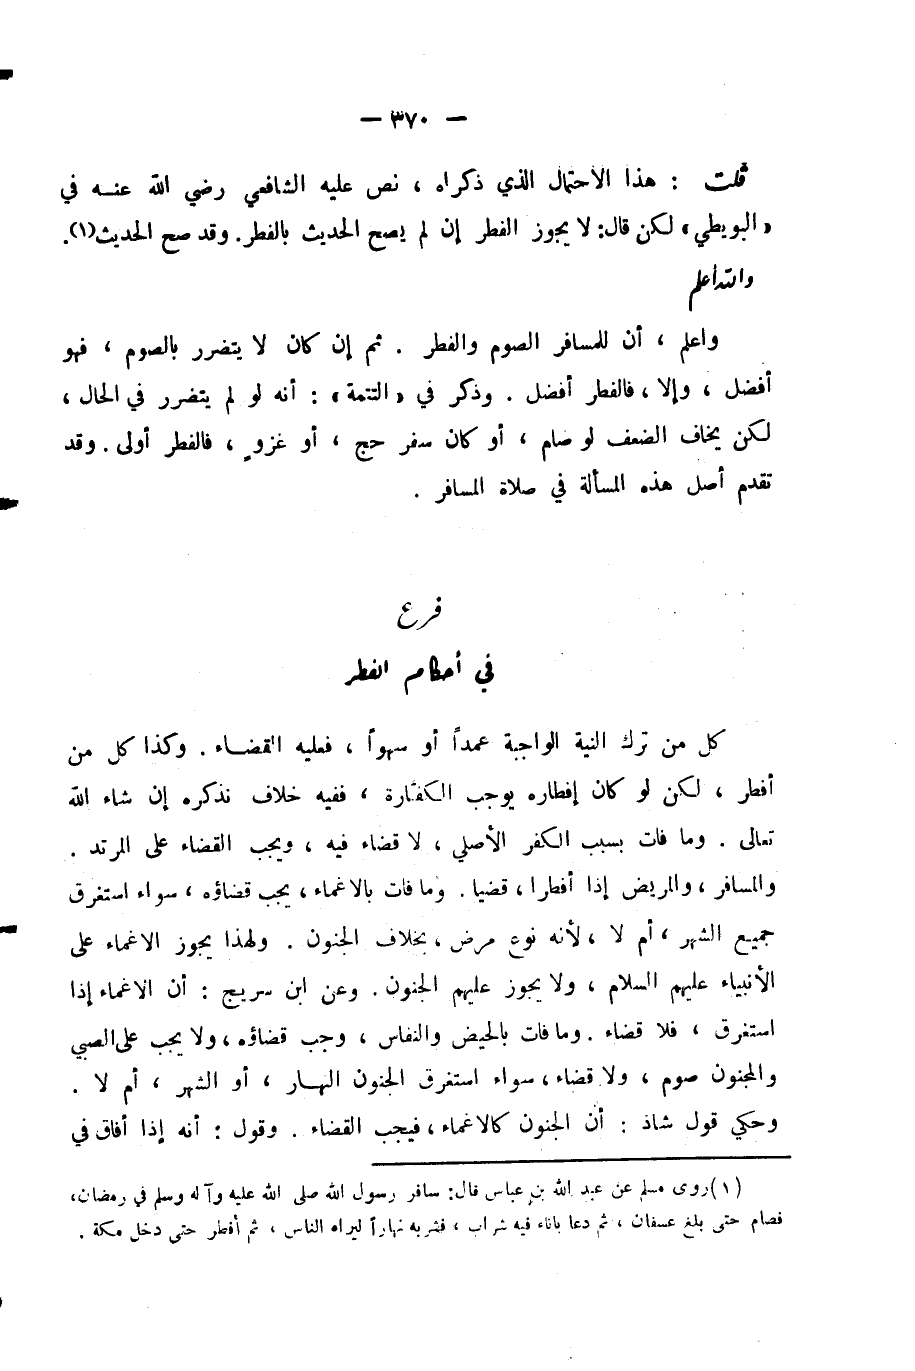 — ٣٧٠ —
قلت : هذا الاحتمال الذي ذكراه ، نص عليه الشافعي رضي الله عنـــه في
« البويطي » لكن قال: لا يجوز الفطر إن لم يصح الحديث بالفطر. وقد صح الحديث(١).
والله أعلم
واعلم ، أن للمسافر الصوم والفطر . ثم إن كان لا يتضرر بالصوم ، فهو
أفضل ، وإلا ، فالفطر أفضل . وذكر في « التتمة » : أنه لو لم يتضرر في الحال ،
لكن يخاف الضعف لو صام ، أو كان سفر حج ، أو غزوٍ ، فالفطر أولى . وقد
تقدم أصل هذه المسألة في صلاة المسافر .
فرع
في أحكام الفطر
كل من ترك النية الواجبة عمداً أو سهواً ، فعليه القضـــاء . وكذا كل من
أفطر ، لكن لو كان إفطاره يوجب الكفّارة ، ففيه خلاف نذكره إن شاء الله
تعالى . وما فات بسبب الكفر الأصلي ، لا قضاء فيه ، ويجب القضاء على المرتد .
والمسافر ، والمريض إذا أفطرا ، قضيا . وما فات بالاغماء ، يجب قضاؤه ، سواء استغرق
جميـع الشهر ، أم لا ، لأنه نوع مرض ، بخلاف الجنون . ولهذا يجوز الاغماء على
الأنبياء عليهم السلام ، ولا يجوز عليهم الجنون . وعن ابن سريج : أن الاغماء إذا
استغرق ، فلا قضاء . وما فات بالحيض والنفاس ، وجب قضاؤه ، ولا يجب على الصبي
والمجنون صوم ، ولا قضاء ، سواء استغرق الجنون النهـار ، أو الشهر ، أم لا .
وحكي قول شاذ : أن الجنون كالاغماء ، فيجب القضاء . وقول : أنه إذا أفاق في
(١) روى مسلم عن عبد الله بن عباس قال: سافر رسول الله صلى الله عليه وآله وسلم في رمضان،
فصام حتى بلغ عسفان ، ثم دعا باناء فيه شراب ، فشربه نهاراً ليراه الناس ، ثم أفطر حتى دخل مكة .